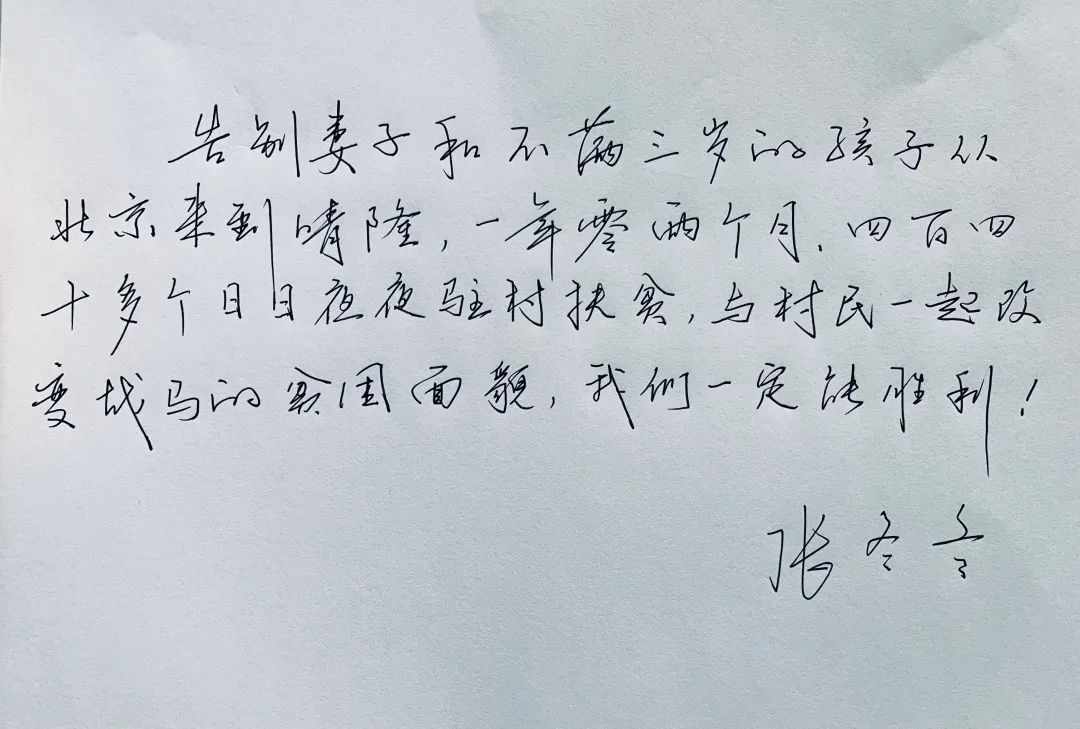 告别妻子和不满三岁的孩子从
北京来到晴隆，一年零两个月、四百四
十多个日日夜夜驻村扶贫，与村民一起改
变战马的贫困面貌，我们一定能胜利！
张冬冬